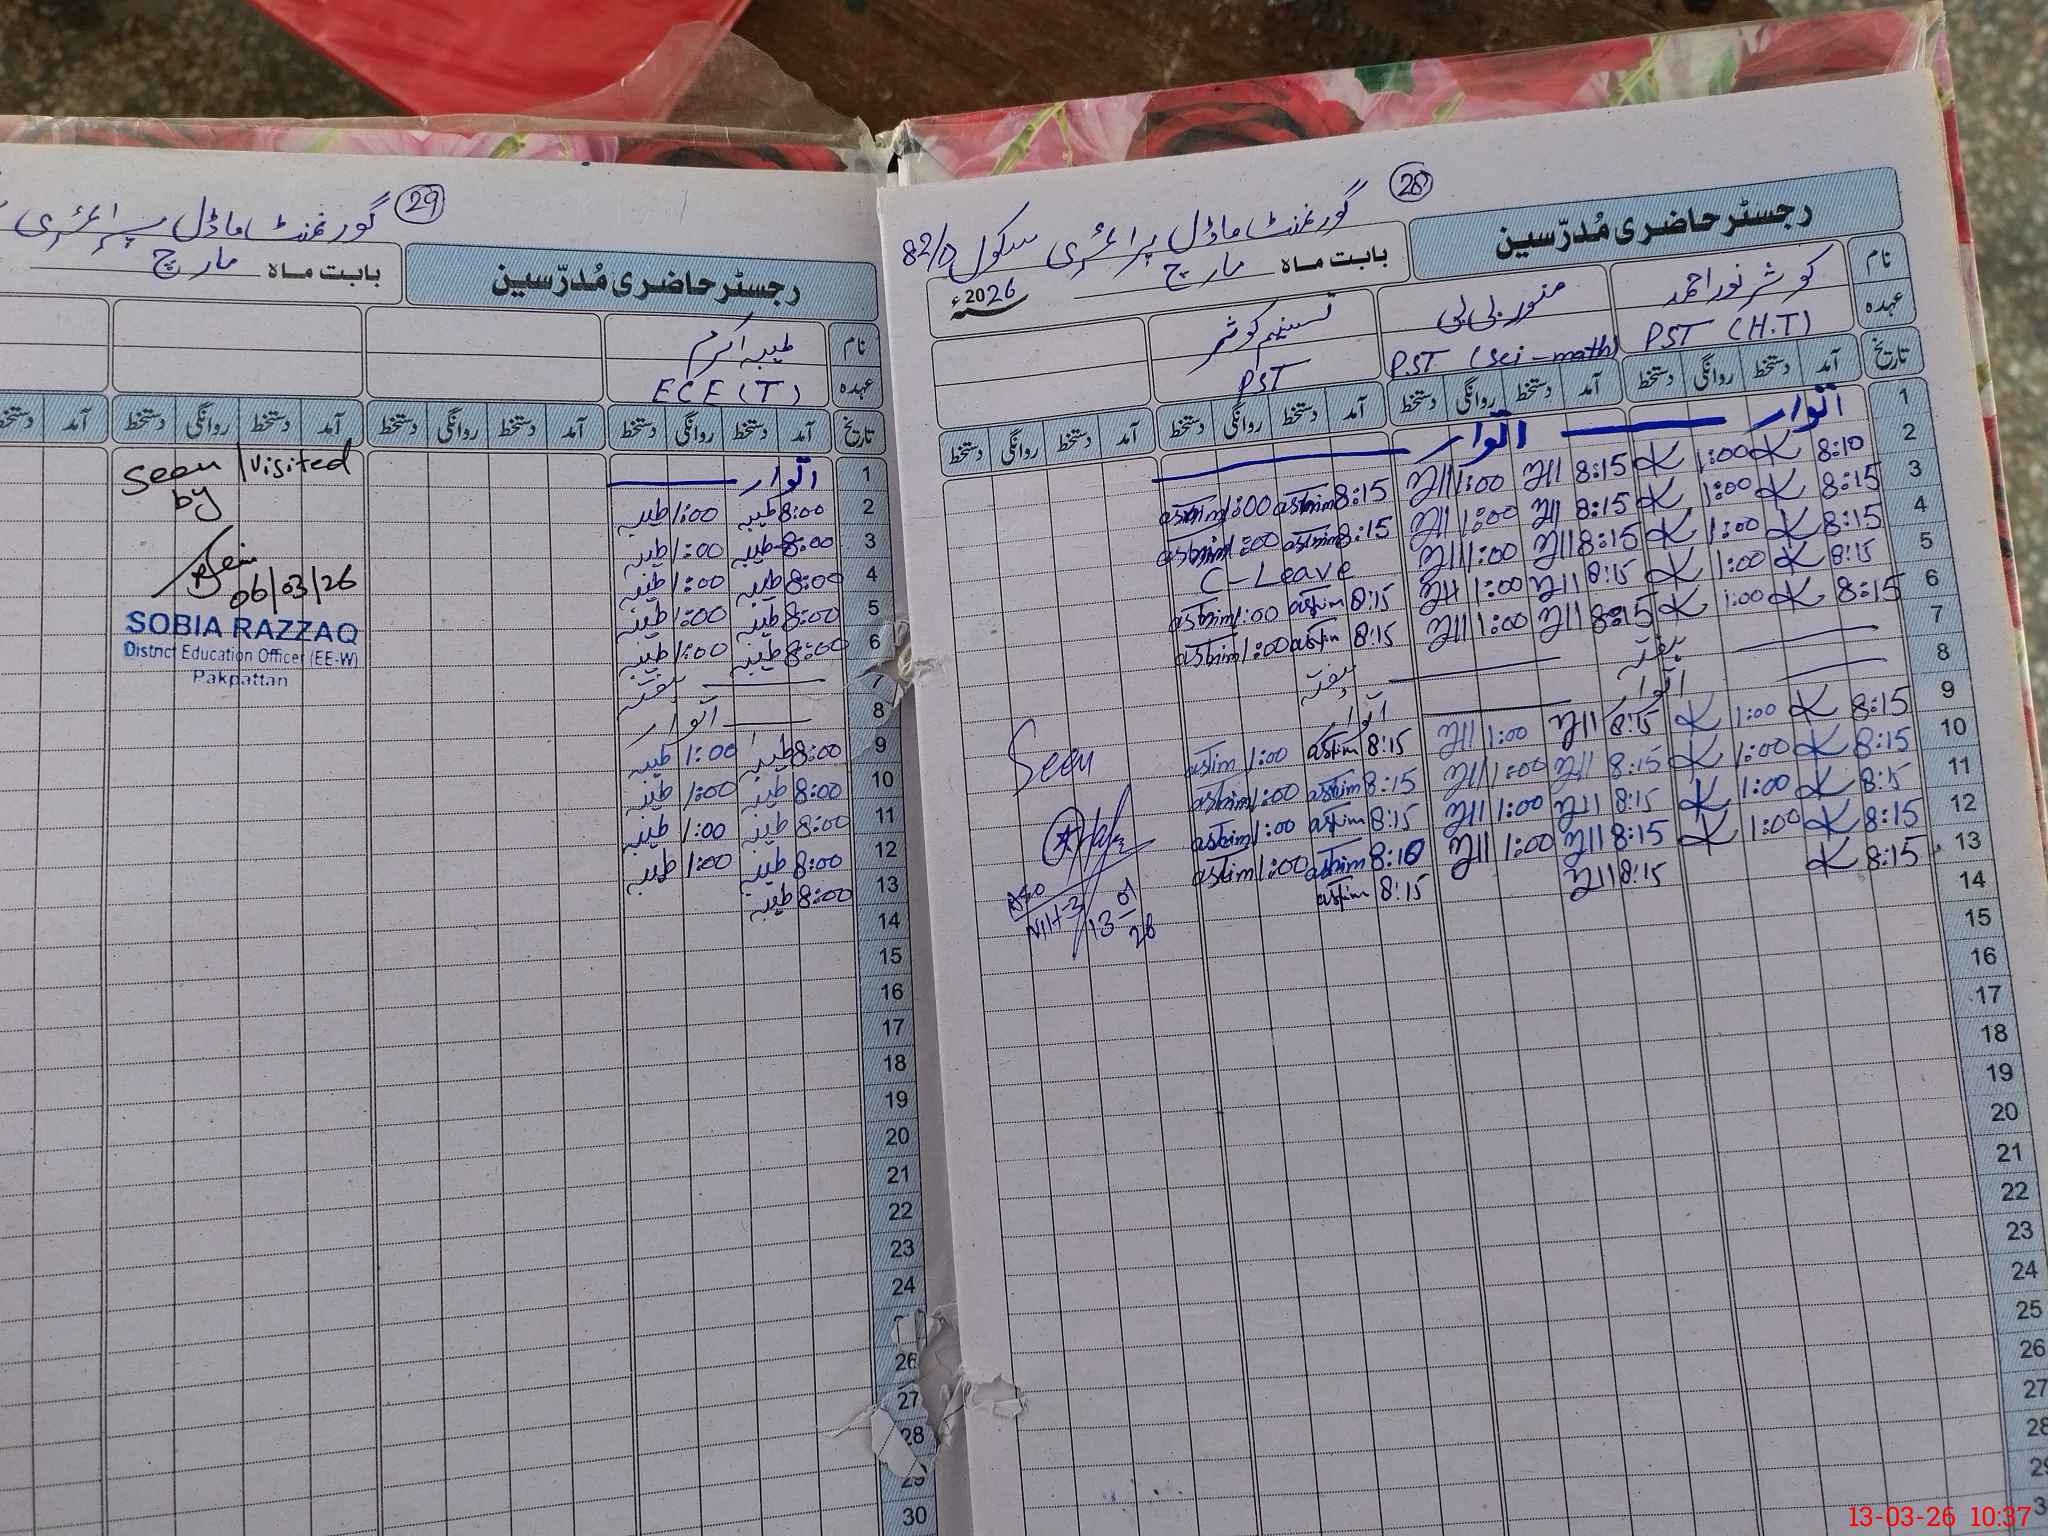 29
گورنمنٹ ماڈل پرائمری
رجسٹر حاضری مُدرّسین
بابت ماہ مارچ
نام
طیبہ اکرم
عہدہ
ECE (T)
تاریخ آمد دستخط روانگی دستخط آمد دستخط روانگی دستخط آمد دستخط روانگی دستخط آمد دستخط
1 اتوار
2 8:00 طیبہ 1:00 طیبہ
3 8:00 طیبہ 1:00 طیبہ
4 8:00 طیبہ 1:00 طیبہ
5 8:00 طیبہ 1:00 طیبہ
6 8:00 طیبہ 1:00 طیبہ
7 ہفتہ
8 اتوار
9 8:00 طیبہ 1:00 طیبہ
10 8:00 طیبہ 1:00 طیبہ
11 8:00 طیبہ 1:00 طیبہ
12 8:00 طیبہ 1:00 طیبہ
13 8:00 طیبہ
14
15
16
17
18
19
20
21
22
23
24
26
27
28
29
30
Seen / Visited
by
06/03/26
SOBIA RAZZAQ
District Education Officer (EE-W)
Pakpattan
28
گورنمنٹ ماڈل پرائمری سکول 82/D
رجسٹر حاضری مُدرّسین
بابت ماہ مارچ 2026ء
نام کوثر نور احمد منور بی بی تسنیم کوثر
عہدہ PST (H.T) PST (Sci-math) PST
تاریخ آمد دستخط روانگی دستخط آمد دستخط روانگی دستخط آمد دستخط روانگی دستخط آمد دستخط روانگی دستخط
1 اتوار اتوار
2 8:10 1:00 8:15 1:00 8:15 1:00
3 8:15 1:00 8:15 1:00 8:15 1:00
4 8:15 1:00 8:15 1:00 C-Leave
5 8:15 1:00 8:15 1:00 8:15 1:00
6 8:15 1:00 8:15 1:00 8:15 1:00
7 ہفتہ ہفتہ
8 اتوار اتوار
9 8:15 1:00 8:15 1:00 8:15 1:00
10 8:15 1:00 8:15 1:00 8:15 1:00
11 8:15 1:00 8:15 1:00 8:15 1:00
12 8:15 1:00 8:15 1:00 8:10 1:00
13 8:15 8:15 8:15
14
15
16
17
18
19
20
21
22
23
24
25
26
27
28
29
Seen
13
13-03-26 10:37